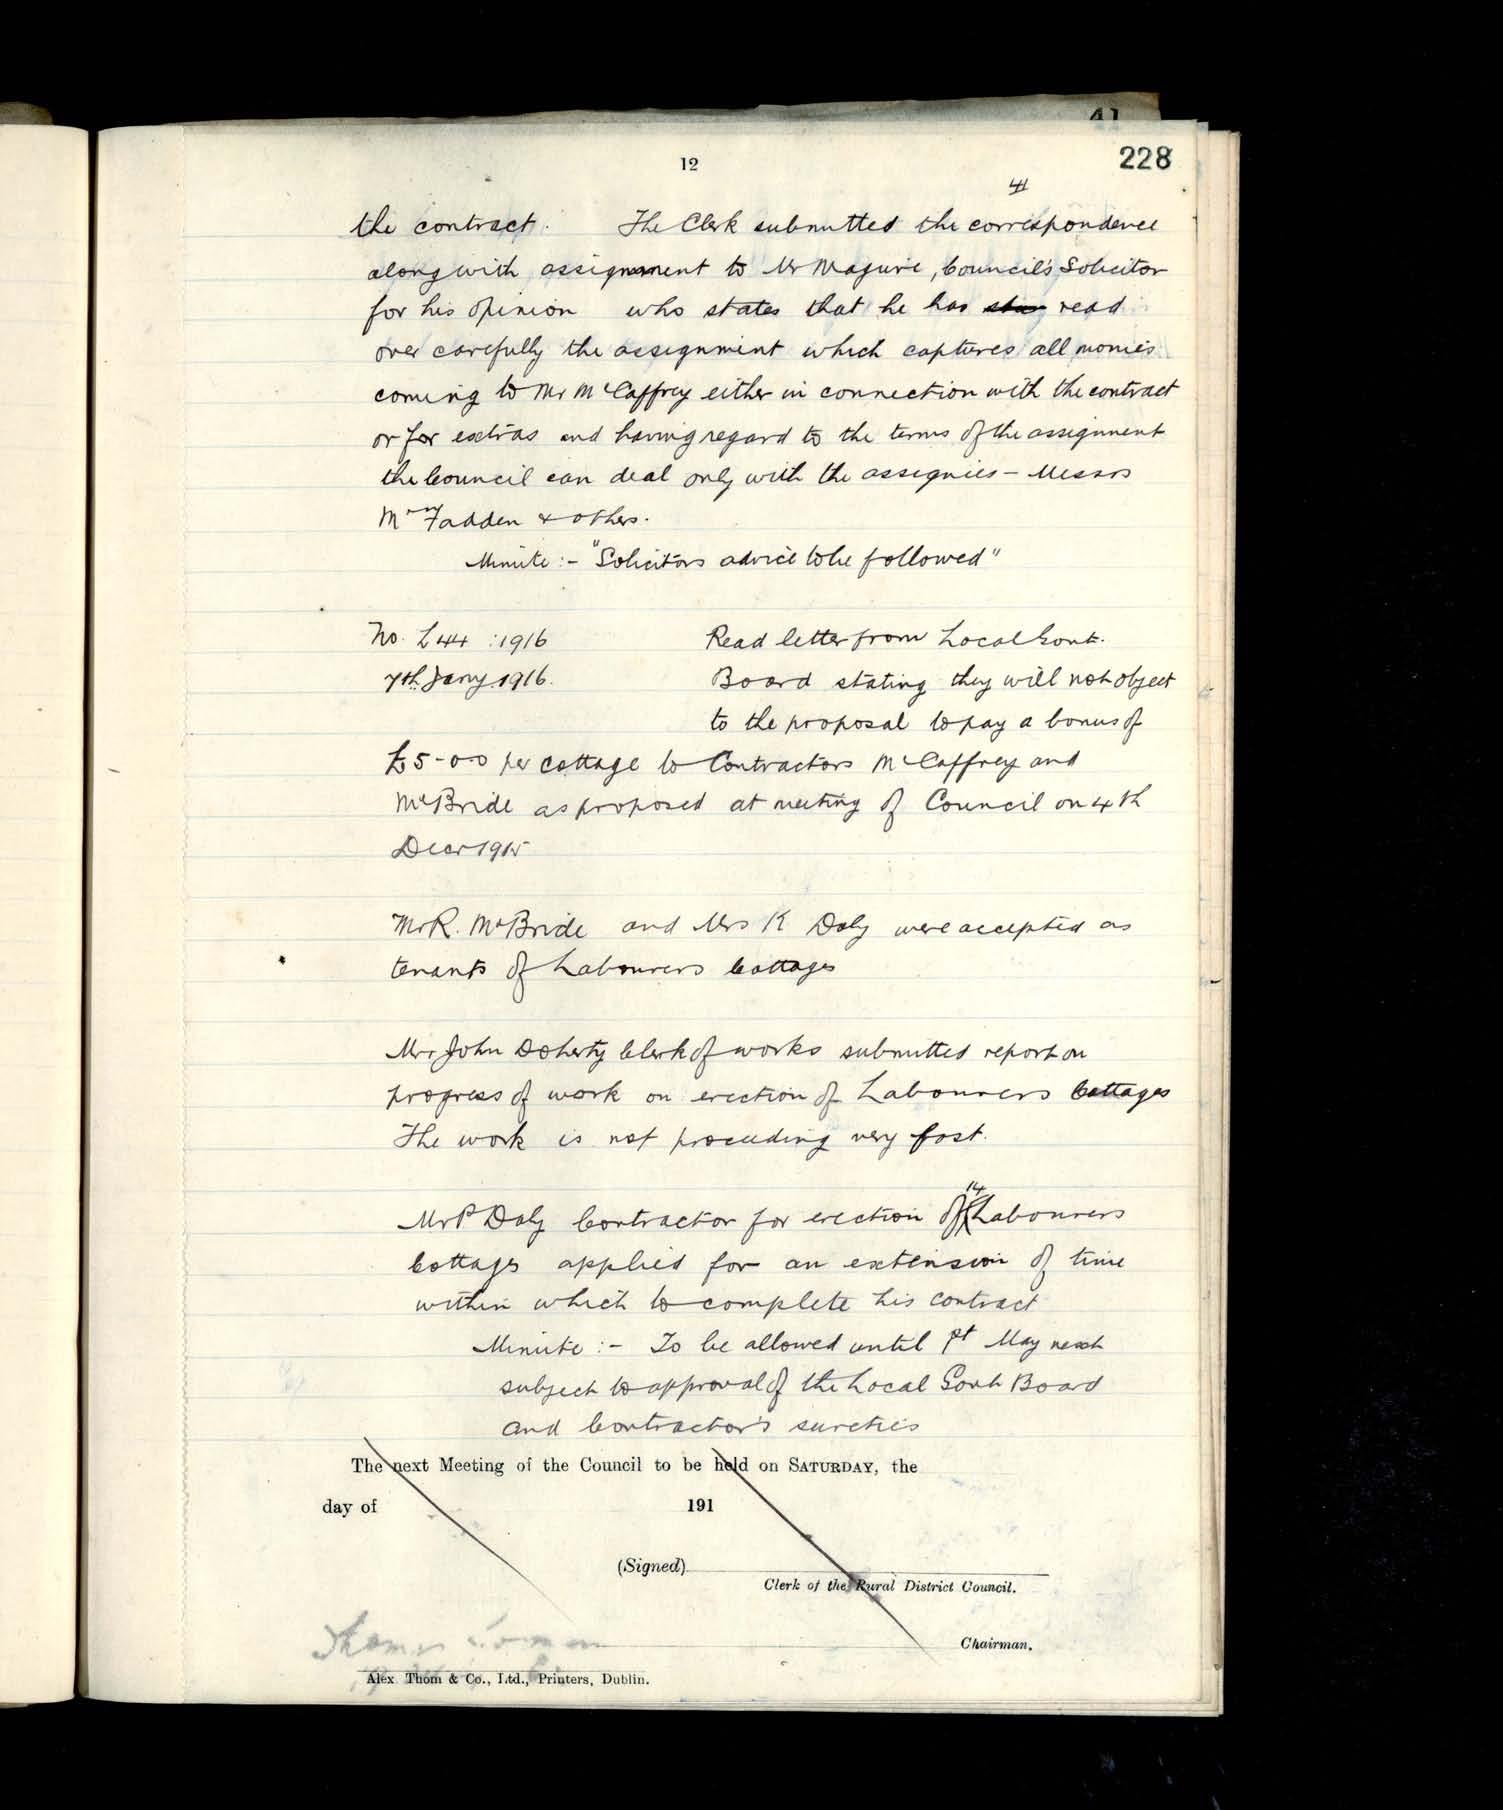 41
228
12
41
the contract. The Clerk submitted the correspondence
along with assignment to Mr Maguire, Council's Solicitor
for his opinion who states that he has read
over carefully the assignment which captures all monies
coming to Mr McCaffrey either in connection with the contract
or for extras and having regard to the terms of the assignment
the Council can deal only with the assignees - Messrs
McFadden & others.
Minute :- "Solicitors advice to be followed"
No. L44 : 1916 Read letter from Local Govt.
7th Jany. 1916. Board stating they will not object
to the proposal to pay a bonus of
£5-0-0 per cottage to Contractors McCaffrey and
McBride as proposed at meeting of Council on 4th
Decr 1915
Mr R. McBride and Mrs K Daly were accepted as
tenants of Labourers Cottages
Mr John Doherty Clerk of works submitted report on
progress of work on erection of Labourers Cottages
The work is not proceeding very fast.
Mr P Daly Contractor for erection of 14 Labourers
Cottages applied for an extension of time
within which to complete his contract
Minute :- To be allowed until 1st May next
subject to approval of the Local Govt Board
and Contractor's sureties
The next Meeting of the Council to be held on SATURDAY, the
day of 191
(Signed)
Clerk of the Rural District Council.
Chairman.
Alex. Thom & Co., Ltd., Printers, Dublin.